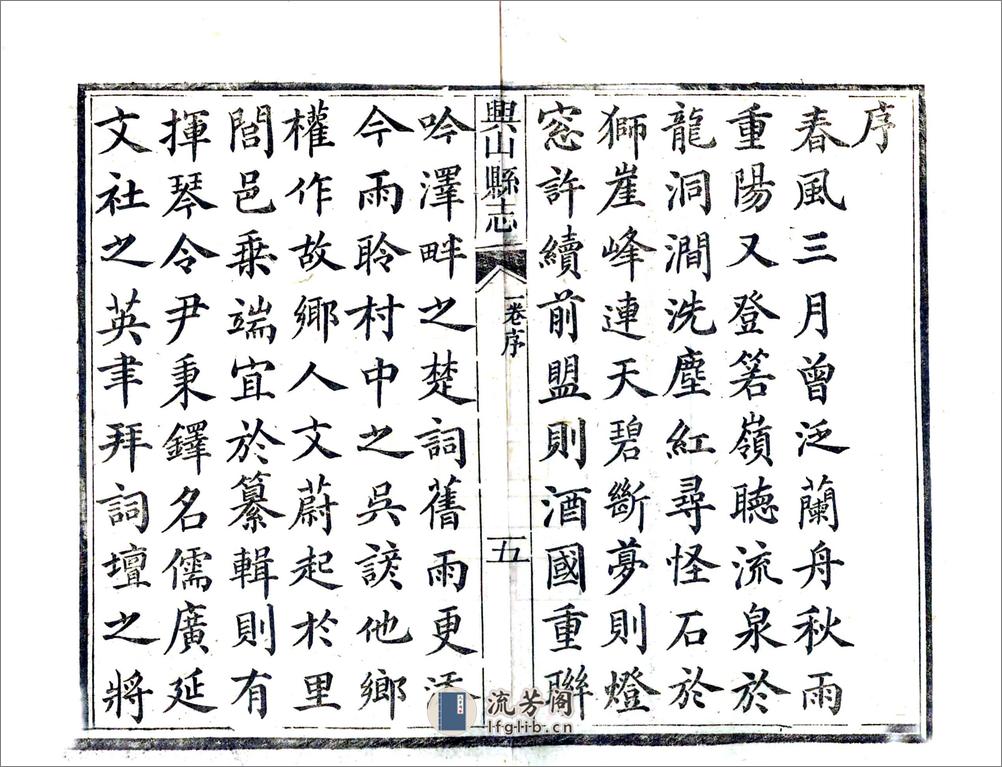 序
春風三月曾泛蘭舟秋雨
重陽又登箬嶺聽流泉於
龍洞澗洗塵紅尋怪石於
獅崖峰連天碧斷夢則燈
窓許續前盟則酒國重聯
興山縣志
一卷序
五
吟澤畔之楚詞舊雨更
今雨聆村中之吳諺他鄉
權作故鄉人文蔚起於里
閭邑乗端宜於纂輯則有
揮琴令尹秉鐸名儒廣延
文社之英聿拜詞壇之將
流芳阁
lfglib.cn